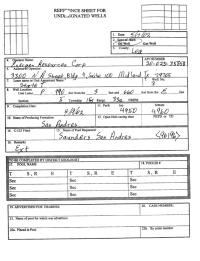 REFERENCE SHEET FOR
UNDESIGNATED WELLS
1. Date
2. Type of Well
Oil Well Gas Well
3. County
Lea
4. Operator Name
API NUMBER
Pelican Resources Corp
5. Address of Operator
3300 N A Street Bldg Suite 100 Midland Tx 79705
6. Lease name or Unit Agreement Name
7. Well No.
State T
8. Well Location
Unit Letter P 990 feet from the S line and 660 feet from the E line
Section 5 Township Range 35E NMPM
9. Completion Date
11. Perfs top bottom
4950 4960
10. Name of Producing Formation
12. Open Hole casing shoe PBTD or TD
San Andres
13. C-123 Filed 14. Name of Pool Requested
Saunders San Andres
15. Remarks
Ext
TO BE COMPLETED BY DISTRICT GEOLOGIST
17. POOL NAME 18. POOL ID #
T S, R E T S, R E
Sec Sec
Sec Sec
Sec Sec
19. ADVERTISED FOR HEARING 20. CASE NUMBER
21. Name of pool for which was advertised
22a. Placed in Pool 22b. By order number